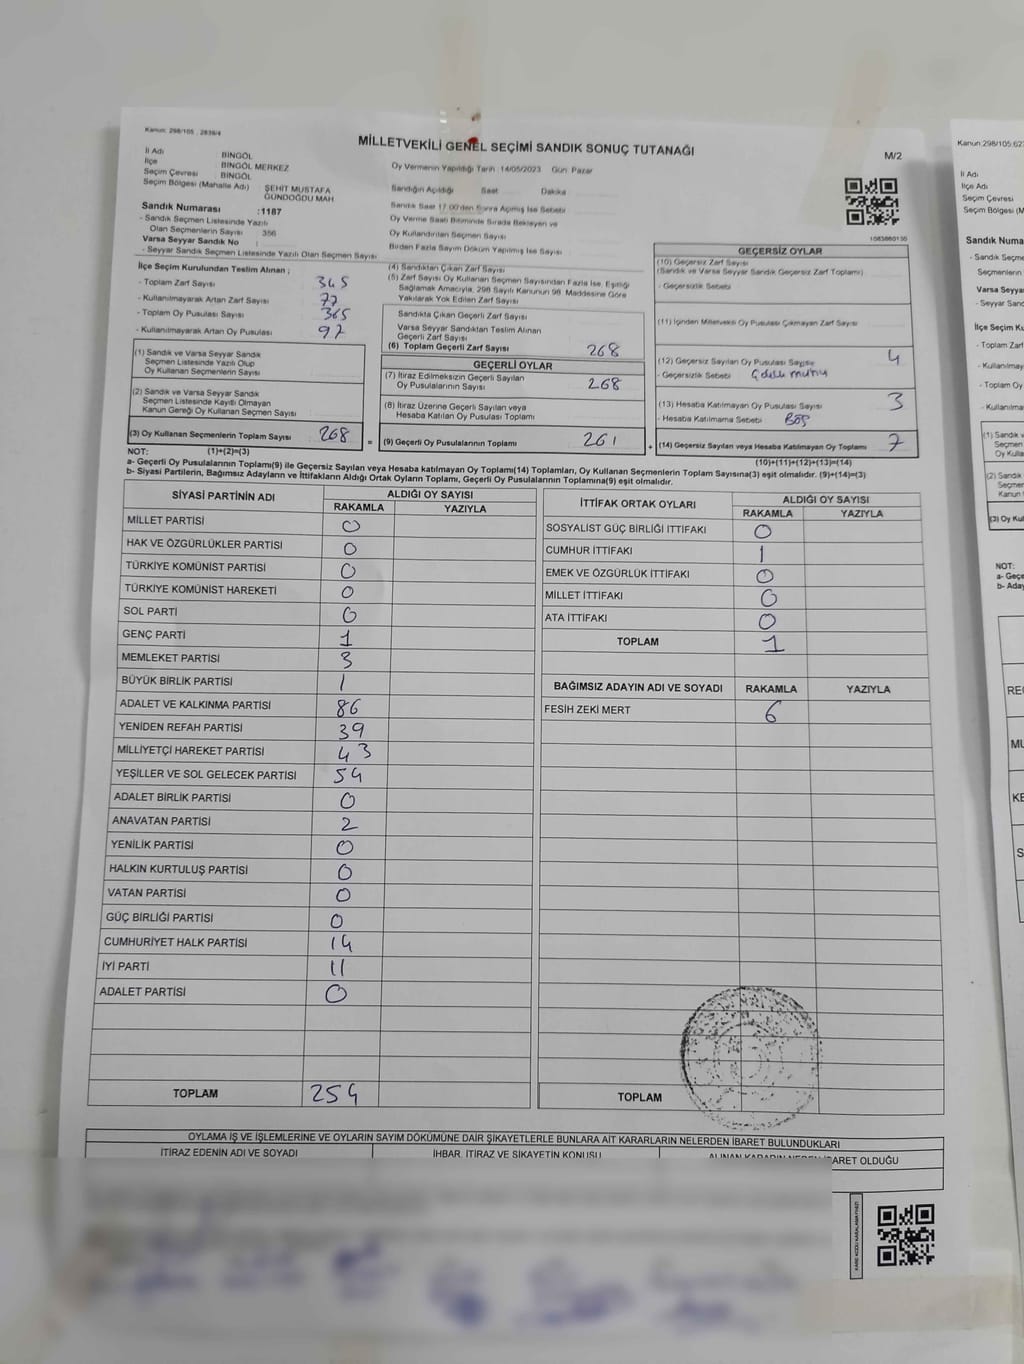 Kanun: 298/105 , 2839/4
MİLLETVEKİLİ GENEL SEÇİMİ SANDIK SONUÇ TUTANAĞI
M/2
İl Adı BİNGÖL
İlçe BİNGÖL MERKEZ
Seçim Çevresi BİNGÖL
Seçim Bölgesi (Mahalle Adı) ŞEHİT MUSTAFA
GÜNDOĞDU MAH.
Sandık Numarası :1187
- Sandık Seçmen Listesinde Yazılı
Olan Seçmenlerin Sayısı 356
Varsa Seyyar Sandık No
- Seyyar Sandık Seçmen Listesinde Yazılı Olan Seçmen Sayısı
Oy Vermenin Yapıldığı Tarih :14/05/2023 Gün Pazar
Sandığın Açıldığı Saat Dakika
Sandık Saat 17.00'den Sonra Açılmış İse Sebebi
Oy Verme Saati Bitiminde Sırada Bekleyen ve
Oy Kullandırılan Seçmen Sayısı
Birden Fazla Sayım Döküm Yapılmış İse Sayısı
İlçe Seçim Kurulundan Teslim Alınan ;
- Toplam Zarf Sayısı 345
- Kullanılmayarak Artan Zarf Sayısı 77
- Toplam Oy Pusulası Sayısı 365
- Kullanılmayarak Artan Oy Pusulası 97
(1) Sandık ve Varsa Seyyar Sandık
Seçmen Listesinde Yazılı Olup
Oy Kullanan Seçmenlerin Sayısı
(2) Sandık ve Varsa Seyyar Sandık
Seçmen Listesinde Kayıtlı Olmayan
Kanun Gereği Oy Kullanan Seçmen Sayısı
(3) Oy Kullanan Seçmenlerin Toplam Sayısı 268
(4) Sandıktan Çıkan Zarf Sayısı
(5) Zarf Sayısı Oy Kullanan Seçmen Sayısından Fazla İse, Eşitliği
Sağlamak Amacıyla, 298 Sayılı Kanunun 98. Maddesine Göre
Yakılarak Yok Edilen Zarf Sayısı
Sandıkta Çıkan Geçerli Zarf Sayısı
Varsa Seyyar Sandıktan Teslim Alınan
Geçerli Zarf Sayısı
(6) Toplam Geçerli Zarf Sayısı 268
GEÇERLİ OYLAR
(7) İtiraz Edilmeksizin Geçerli Sayılan
Oy Pusulalarının Sayısı 268
(8) İtiraz Üzerine Geçerli Sayılan veya
Hesaba Katılan Oy Pusulası Toplamı
= (9) Geçerli Oy Pusulalarının Toplamı 261
1683860130
GEÇERSİZ OYLAR
(10) Geçersiz Zarf Sayısı
(Sandık ve Varsa Seyyar Sandık Geçersiz Zarf Toplamı)
- Geçersizlik Sebebi
(11) İçinden Milletvekili Oy Pusulası Çıkmayan Zarf Sayısı
(12) Geçersiz Sayılan Oy Pusulası Sayısı 4
- Geçersizlik Sebebi
(13) Hesaba Katılmayan Oy Pusulası Sayısı 3
- Hesaba Katılmama Sebebi BOŞ
+ (14) Geçersiz Sayılan veya Hesaba Katılmayan Oy Toplamı 7
NOT: (1)+(2)=(3)
(10)+(11)+(12)+(13)=(14)
a- Geçerli Oy Pusulalarının Toplamı(9) ile Geçersiz Sayılan veya Hesaba katılmayan Oy Toplamı(14) Toplamları, Oy Kullanan Seçmenlerin Toplam Sayısına(3) eşit olmalıdır. (9)+(14)=(3)
b- Siyasi Partilerin, Bağımsız Adayların ve İttifakların Aldığı Ortak Oyların Toplamı, Geçerli Oy Pusulalarının Toplamına(9) eşit olmalıdır.
SİYASİ PARTİNİN ADI ALDIĞI OY SAYISI
RAKAMLA YAZIYLA
MİLLET PARTİSİ 0
HAK VE ÖZGÜRLÜKLER PARTİSİ 0
TÜRKİYE KOMÜNİST PARTİSİ 0
TÜRKİYE KOMÜNİST HAREKETİ 0
SOL PARTİ 0
GENÇ PARTİ 1
MEMLEKET PARTİSİ 3
BÜYÜK BİRLİK PARTİSİ 1
ADALET VE KALKINMA PARTİSİ 86
YENİDEN REFAH PARTİSİ 39
MİLLİYETÇİ HAREKET PARTİSİ 43
YEŞİLLER VE SOL GELECEK PARTİSİ 54
ADALET BİRLİK PARTİSİ 0
ANAVATAN PARTİSİ 2
YENİLİK PARTİSİ 0
HALKIN KURTULUŞ PARTİSİ 0
VATAN PARTİSİ 0
GÜÇ BİRLİĞİ PARTİSİ 0
CUMHURİYET HALK PARTİSİ 14
İYİ PARTİ 11
ADALET PARTİSİ 0
TOPLAM 254
İTTİFAK ORTAK OYLARI ALDIĞI OY SAYISI
RAKAMLA YAZIYLA
SOSYALİST GÜÇ BİRLİĞİ İTTİFAKI 0
CUMHUR İTTİFAKI 1
EMEK VE ÖZGÜRLÜK İTTİFAKI 0
MİLLET İTTİFAKI 0
ATA İTTİFAKI 0
TOPLAM 1
BAĞIMSIZ ADAYIN ADI VE SOYADI RAKAMLA YAZIYLA
FESİH ZEKİ MERT 6
TOPLAM
OYLAMA İŞ VE İŞLEMLERİNE VE OYLARIN SAYIM DÖKÜMÜNE DAİR ŞİKAYETLERLE BUNLARA AİT KARARLARIN NELERDEN İBARET BULUNDUKLARI
İTİRAZ EDENİN ADI VE SOYADI İHBAR, İTİRAZ VE ŞİKAYETİN KONUSU ALINAN KARARIN NEDEN İBARET OLDUĞU
Kanun:298/105,62
İl Adı
İlçe Adı
Seçim Çevresi
Seçim Bölgesi (M
Sandık Numa
- Sandık Seçme
Seçmenlerin
Varsa Seyya
- Seyyar Sand
İlçe Seçim Ku
- Toplam Zarf
- Kullanılmaya
- Toplam Oy
- Kullanılma
(1) Sandık v
Seçmen
Oy Kulla
(2) Sandık
Seçmer
Kanun
(3) Oy Kul
NOT:
a- Geçe
b- Aday